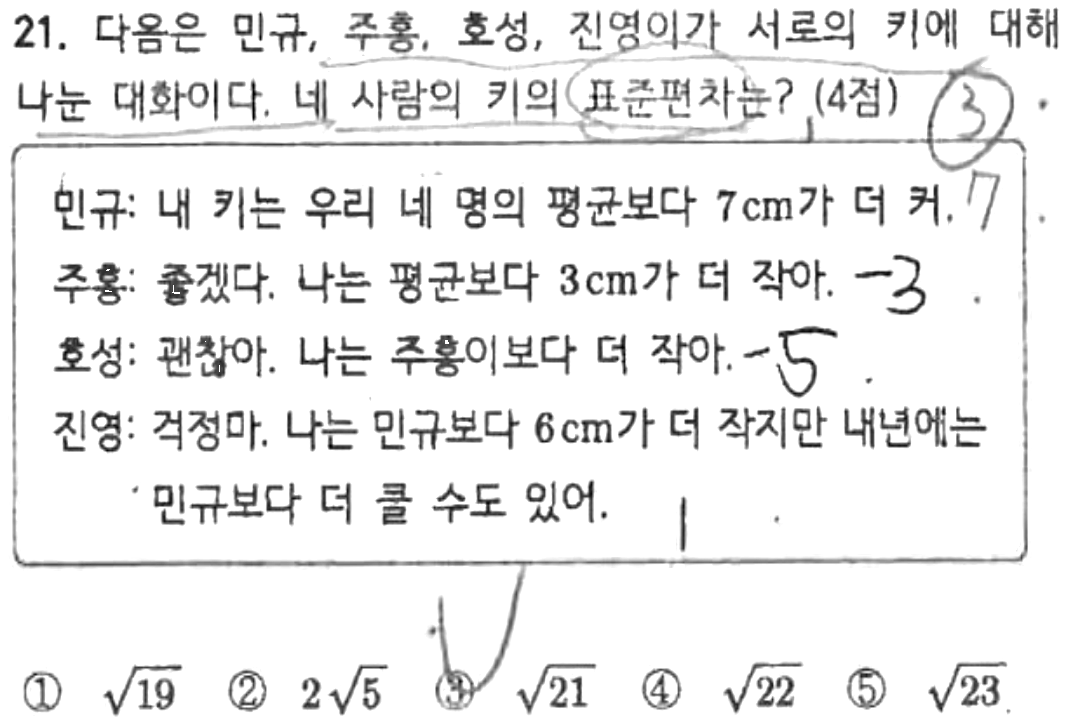 21. 다음은 민규, 주홍, 호성, 진영이가 서로의 키에 대해
나눈 대화이다. 네 사람의 키의 표준편차는? (4점) ③
민규: 내 키는 우리 네 명의 평균보다 7cm가 더 커. 7
주홍: 좋겠다. 나는 평균보다 3cm가 더 작아. -3
호성: 괜찮아. 나는 주홍이보다 더 작아. -5
진영: 걱정마. 나는 민규보다 6cm가 더 작지만 내년에는
민규보다 더 클 수도 있어. 1
① √19 ② 2√5 ③ √21 ④ √22 ⑤ √23